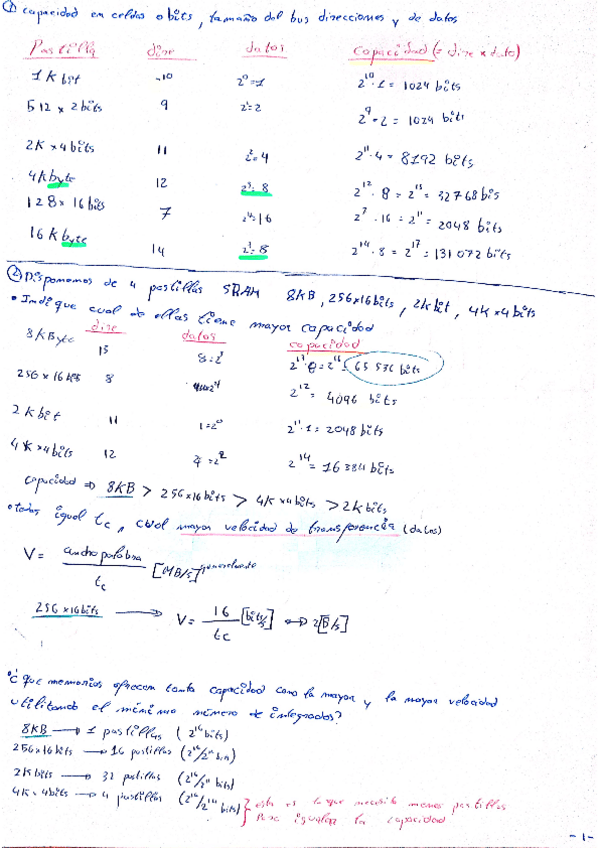 ① capacidad en celdas o bits, tamaño del bus direcciones y de datos
Pastilla dire datos capacidad (= dire x dato)
1 K bit 10 2⁰=1 2¹⁰·1 = 1024 bits
512 x 2 bits 9 2¹=2 2⁹·2 = 1024 bits
2K x 4 bits 11 2²=4 2¹¹·4 = 8192 bits
4K byte 12 2³=8 2¹²·8 = 2¹⁵ = 32768 bis
128 x 16 bits 7 2⁴=16 2⁷·16 = 2¹¹ = 2048 bits
16 K byte 14 2³=8 2¹⁴·8 = 2¹⁷ = 131072 bits
② Disponemos de 4 pastillas SRAM 8KB, 256x16bits, 2kbit, 4K x4 bits
• Indique cual de ellas tiene mayor capacidad
dire datos capacidad
8 KByte 13 8=2³ 2¹³·8=2¹⁶= 65 536 bits
256 x 16 bits 8 =2⁴ 2¹² = 4096 bits
2 K bit 11 1=2⁰ 2¹¹·1 = 2048 bits
4 K x4 bits 12 4=2² 2¹⁴ = 16384 bits
capacidad ⇒ 8KB > 256x16bits > 4K x4 bits > 2K bits
• todas igual tc, cual mayor velocidad de transferencia (datos)
V = ancho palabra / tc [MB/s] generalmente
256 x16bits → V = 16 / tc [bits/s] ⇔ 2[B/s]
• ¿que memorias ofrecen tanta capacidad como la mayor y la mayor velocidad
utilitando el minimo número de integrados?
8KB → 1 pastillas (2¹⁶ bits)
256x16bits → 16 pastillas (2¹⁶/2¹² bits)
2K bits → 32 pastillas (2¹⁶/2¹¹ bits)
4K x 4bits → 4 pastillas (2¹⁶/2¹⁴ bits) } esta es la que necesita menos pastillas
para igualar la capacidad
- 1 -